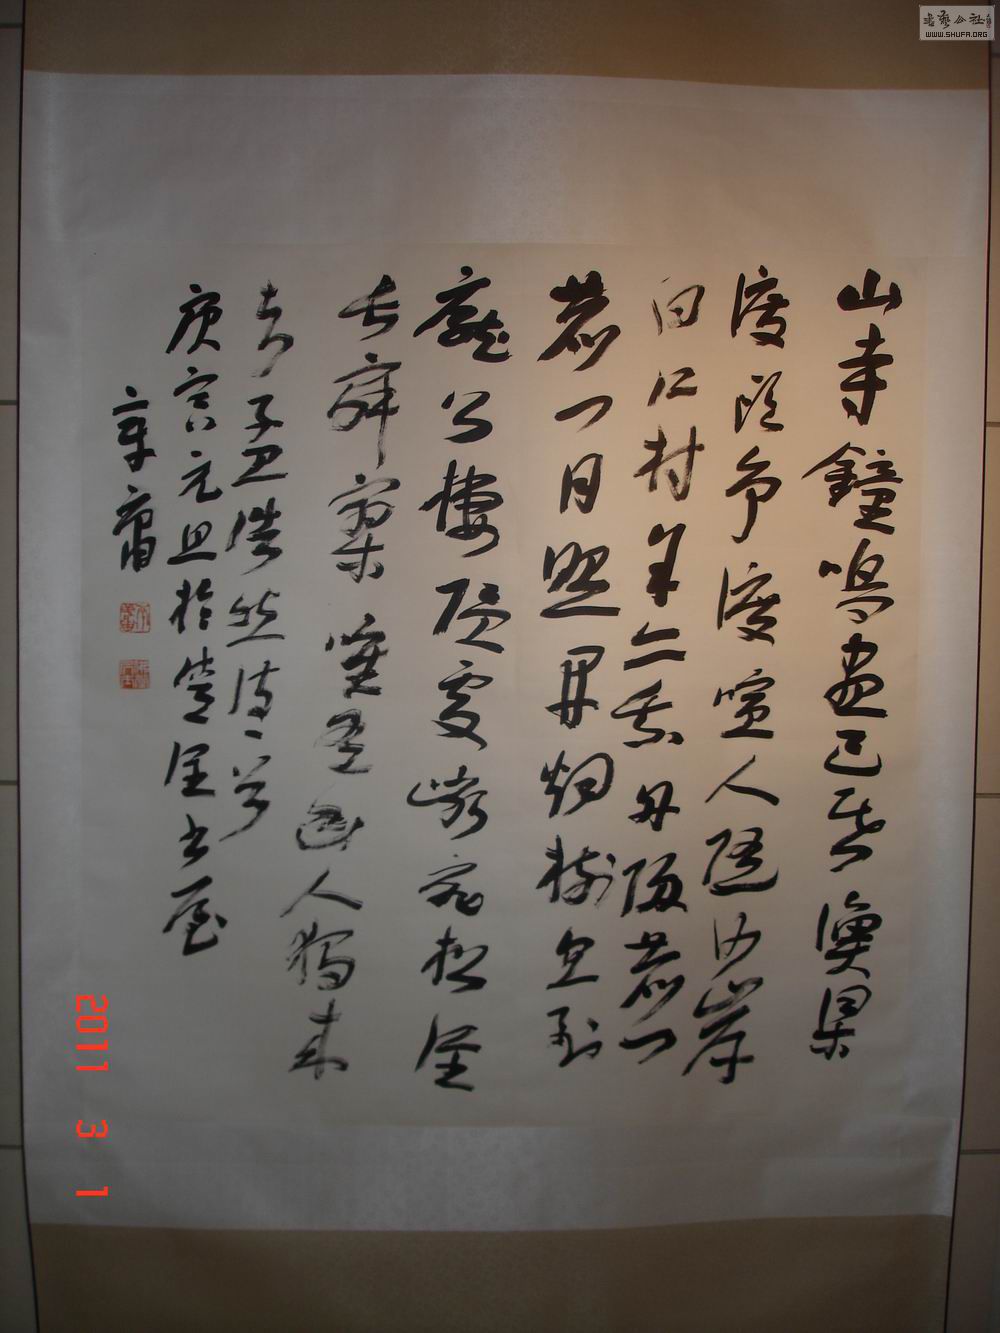 山寺鐘鳴晝已昏漁梁
渡頭爭渡喧人隨沙岸
向江村余亦乘舟歸鹿門
鹿門月照開煙樹忽到
龐公棲隱處巖扉松徑
長寂寥唯有幽人獨來
去孟浩然詩一首
庚寅元旦於書屋
書藝公社
WWW.SHUFA.ORG
2011 3 1